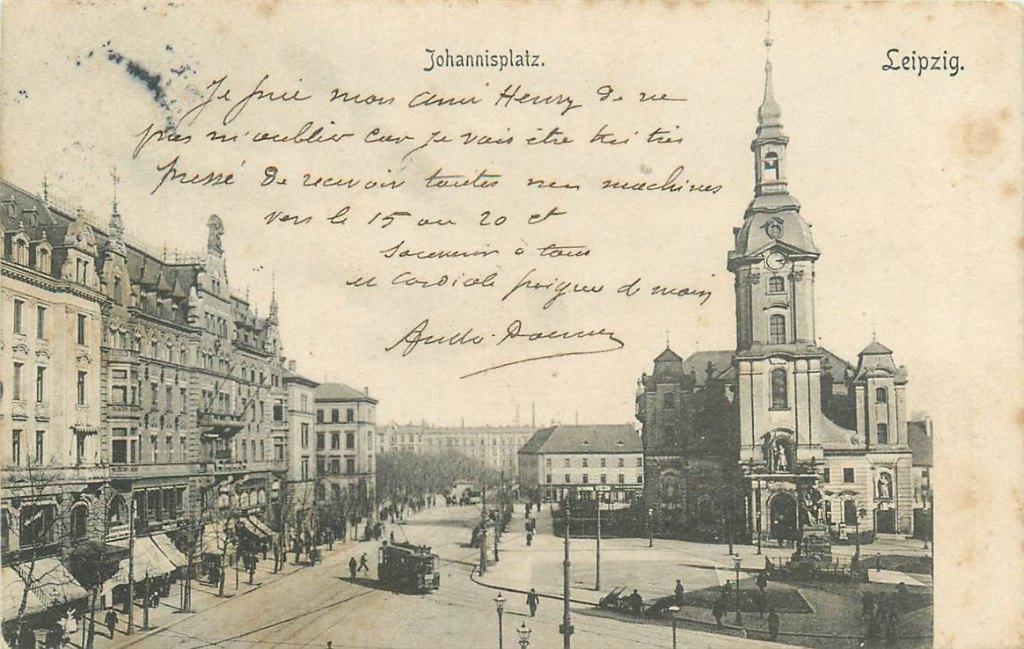 Johannisplatz.
Leipzig.
Je prie mon ami Henry de ne
pas m'oublier car je vais être très très
pressé de recevoir toutes mes machines
vers le 15 au 20 ct
Souvenir à tous
et cordiale poignée de main